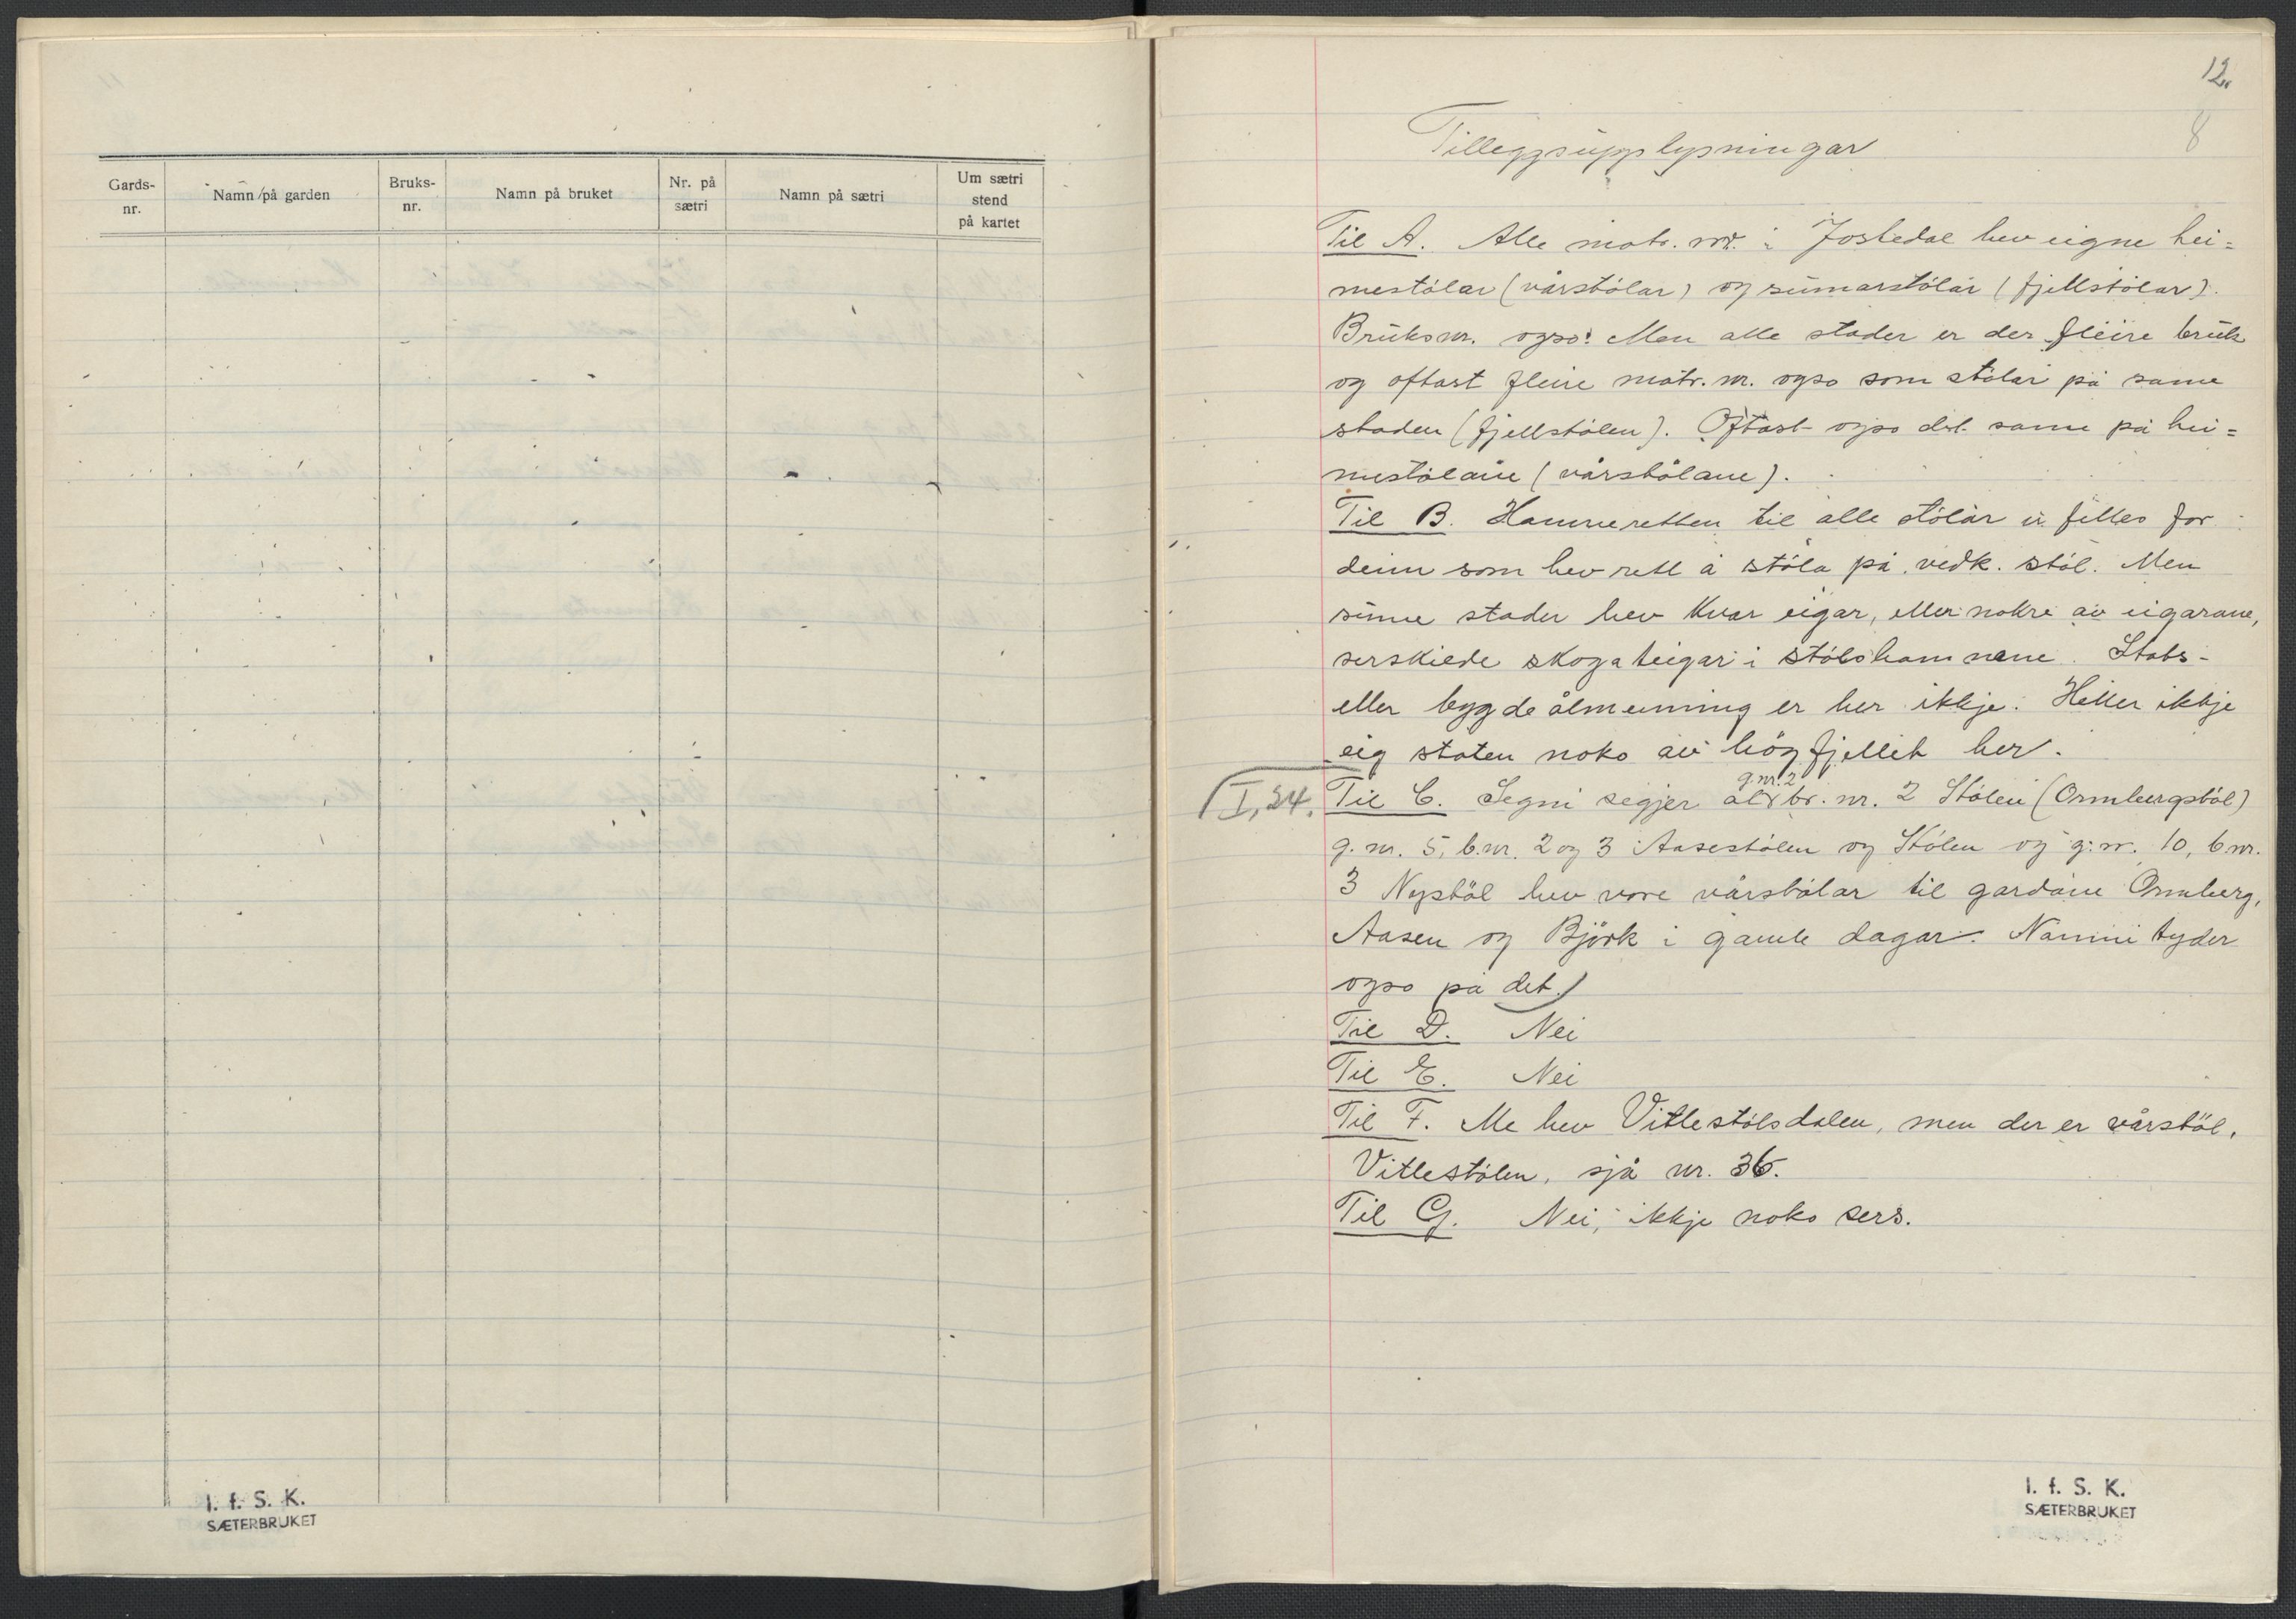 Gards-
nr.
Namn på garden
Bruks-
nr.
Namn på bruket
Nr. på
sætri
Namn på sætri
Um sætri
stend
på kartet
I. f. S. K.
SÆTERBRUKET
12.
8
Tilleggsupplysningar
Til A. Alle matr. nr. i Jostedal hev eigne hei=
mestölar (vårstölar) og sumarstölar (fjellstölar).
Bruksnr. ogso. Men alle stader er der fleire bruk
og oftast fleire matr. nr. ogso som stölar på same
staden (fjellstölen). Oftast ogso det same på hei=
mestölane (vårstölane).
Til B. Hamneretten til alle stölar er felles for
deim som hev rett å stöla på vedk. stöl. Men
sume stader hev kvar eigar, eller nokre av eigarane,
serskilde skogateigar i stölshamnene. Stats-
eller bygdeålmenning er her ikkje. Heller ikkje
eig staten noko av högfjellet her.
g.nr. 2
I, 24. Til C. Segni segjer at br. nr. 2 Stölen (Ormbergstöl)
g. nr. 5, b.nr. 2 og 3 Aasestölen og Stölen og g.nr. 10, b.nr.
3 Nystöl hev vore vårstölar til gardane Ormberg,
Aasen og Björk i gamle dagar. Namni tyder
ogso på det.)
Til D. Nei
Til E. Nei
Til F. Me hev Vitlestölsdalen, men der er vårstöl,
Vitlestölen, sjå nr. 36.
Til G. Nei, ikkje noko sers.
I. f. S. K.
SÆTERBRUKET